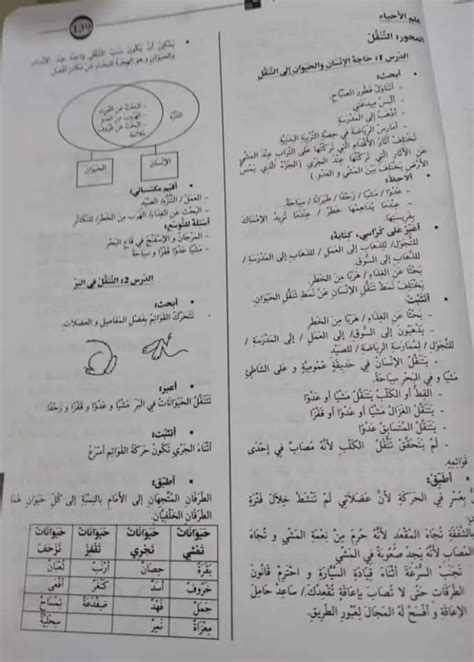 علم الأحياء
المحور: التَّنَقُّل
الدرس 1: حاجة الإنسان والحيوان إلى التَّنَقُّل
• أبحث:
- أتناول فطور الصّباح.
- ألبس ميدعتي
- أذهب إلى المدرسة
- أمارس الرّياضة في حصّة التّربية البدنيّة
تختلف آثار الأقدام الّتي تركتها على التّراب عند المشي
عن الآثار الّتي تركتها عند الجري (الجزء الّذي يمسّ
الأرض يختلف بين المشي و العدو.)
• ألاحظ:
- عدوًا / مشيًا / زحفًا / طيرانًا / سباحة.
- عندما يداهمها خطر / عندما تريد الإمساك
بفريستها.
• أعبّر على كرّاسي، كتابة:
للتّجوّل / للذّهاب إلى العمل / للذّهاب إلى المدرسة /
بحثًا عن الغذاء / هربًا من الخطر
يختلف نمط تنقّل الإنسان عن نمط تنقّل الحيوان.
• أتثبّت:
- بحثًا عن الغذاء / هربًا من الخطر
- يذهبون إلى السّوق / إلى العمل / إلى المدرسة /
للتّجوّل / لممارسة الرّياضة / للصّيد
- يتنقّل الإنسان في حديقة عموميّة و على الشّاطئ
مشيًا و في البحر سباحة.
- القطّ أو الكلب يتنقّل مشيًا أو عدوًا
- يتنقّل الغزال مشيًا أو عدوًا أو قفزًا
- يتنقّل المتسابق عدوًا
- لم يتحقّق تنقّل الكلب لأنّه مصاب في إحدى
قوائمه.
• أطبّق:
بعسر في الحركة لأنّ عضلاتي لم تنشط خلال فترة
بالشّفقة تجاه المقعد لأنّه حرم من نعمة المشي و تجاه
المصاب بكسر لأنّه يجد صعوبة في المشي
تجنّب السّرعة أثناء قيادة السّيّارة و احترم قانون
الطّرقات حتّى لا تصاب بإعاقة تقعدك / ساعد حامل
الإعاقة و أفسح له المجال لعبور الطّريق.
139
- يمكن أن يكون سبب التّنقّل واحدًا عند الإنسان
والحيوان و هو الهجرة للبحث عن مكان أفضل
النّزهة
- البحث عن القوت
- الهروب من الخطر
- البحث عن ظروف
ملائمة
الإنسان
الحيوان
• أقيّم مكتسباتي:
- العمل / النّزهة / الصّيد.
- البحث عن الغذاء / الهرب من الخطر / للتّكاثر
أسئلة للتّوسّع:
- المرجان و الإسفنج في قاع البحر
- مشيًا عدوًا قفزًا و سباحة
الدرس 2: التَّنَقُّل في البرّ
• أبحث:
تتحرّك القوائم بفضل المفاصل و العضلات.
• أعبّر:
تتنقّل الحيوانات في البرّ مشيًا و عدوًا و قفزًا و زحفًا.
• أتثبّت:
أثناء الجري تكون حركة القوائم أسرع
• أطبّق:
الطّرفان المتّجهان إلى الأمام بالنّسبة إلى كلّ حيوان هما
الطّرفان الخلفيّان.
حيوانات تمشي | حيوانات تجري | حيوانات تقفز | حيوانات تزحف
بقرة | حصان | أرنب | ثعبان
خروف | أسد | كنغر | أفعى
جمل | فهد | ضفدعة | تمساح
معزاة | نمر | | سحليّة